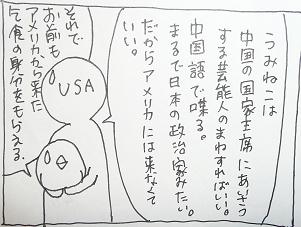 うみねこは
中国の国家主席にあいさつ
する芸能人のまねすればいい。
中国語で喋る。
まるで日本の政治家みたい。
だからアメリカには来なくて
いい。
USA
それで
お前も
アメリカから来た
乞食の身分をもらえる。